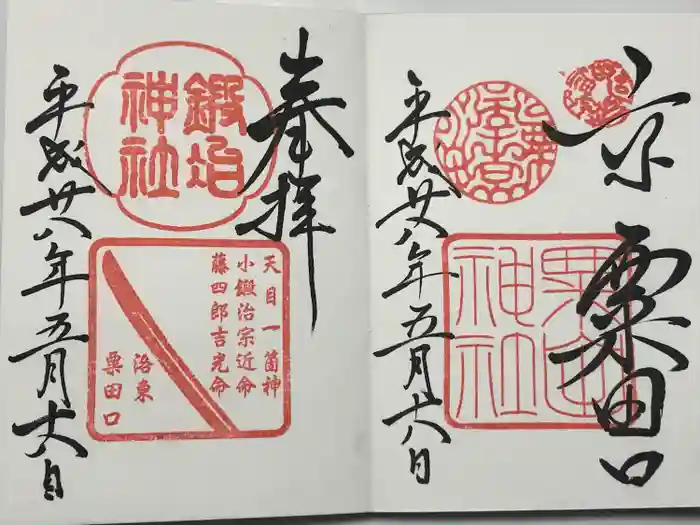 京
粟田口
平成廿八年五月十八日
粟田神社
奉拝
鍛冶神社
天目一箇神
小鍛治宗近命
藤四郎吉光命
洛東
粟田口
平成廿八年五月十八日